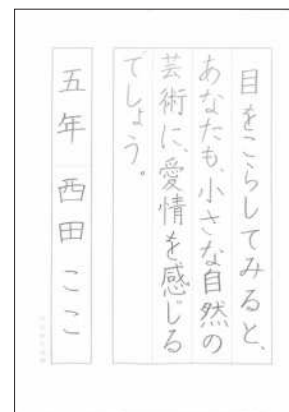 目をこらしてみると、
あなたも、小さな自然の
芸術に、愛情を感じる
でしょう。
五年 西田 ここ